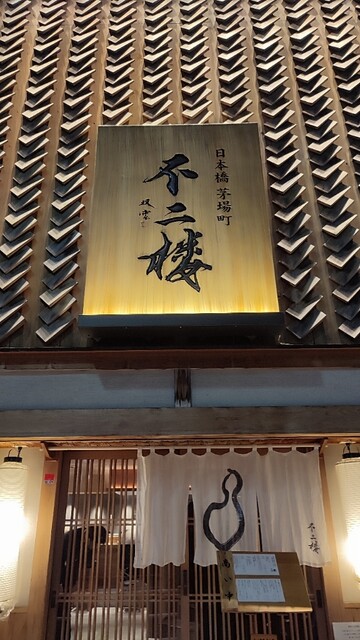 日本橋 茅場町
不二楼
双雲
不二楼